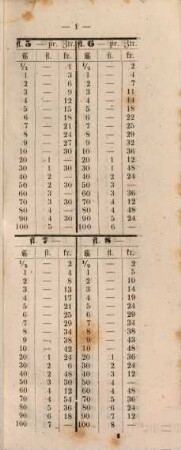 — 1 —
fl. 5 — pr. Ztr. fl. 6 — pr. Ztr.
℔ fl. kr. ℔ fl. kr.
½ — ½ — 2
1 — 3 1 — 4
2 — 6 2 — 7
3 — 9 3 — 11
4 — 12 4 — 14
5 — 15 5 — 18
6 — 18 6 — 22
7 — 21 7 — 25
8 — 24 8 — 29
9 — 27 9 — 32
10 — 30 10 — 36
20 1 — 20 1 12
30 1 30 30 1 48
40 2 — 40 2 24
50 2 30 50 3 —
60 3 — 60 3 36
70 3 30 70 4 12
80 4 — 80 4 48
90 4 30 90 5 24
100 5 — 100 6 —
fl. 7 — fl. 8 —
℔ fl. kr. ℔ fl. kr.
½ — 2 ½ — 2
1 — 4 1 — 5
2 — 8 2 — 10
3 — 13 3 — 14
4 — 17 4 — 19
5 — 21 5 — 24
6 — 25 6 — 29
7 — 29 7 — 34
8 — 34 8 — 38
9 — 38 9 — 43
10 — 42 10 — 48
20 1 24 20 1 36
30 2 6 30 2 24
40 2 48 40 3 12
50 3 30 50 4 —
60 4 12 60 4 48
70 4 54 70 5 36
80 5 36 80 6 24
90 6 18 90 7 12
100 7 — 100 8 —